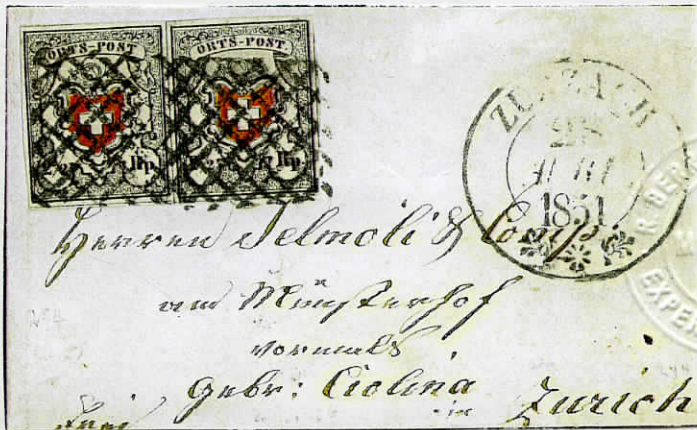 ORTS-POST ORTS-POST.
Rp. 2½ Rp.
ZURZACH
28
1851
Herren Jelmoli & Comp.
am Münsterhof
vormals
Gebr: Ciolina Zürich
EXPE